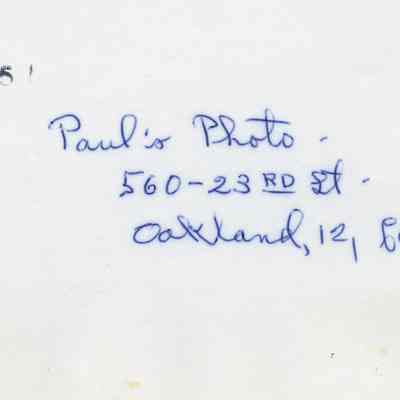 Paul's Photo.
560-23 RD St.
Oakland, 12,